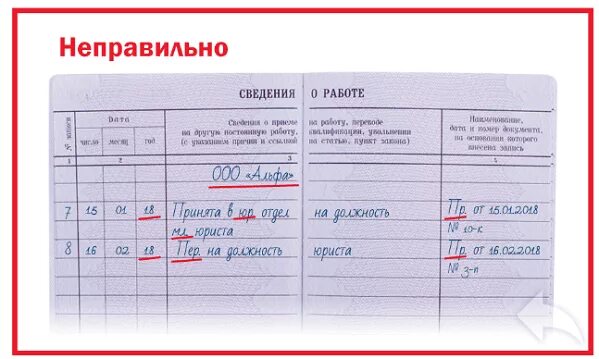 Неправильно
СВЕДЕНИЯ О РАБОТЕ
№ записи
Дата
число
месяц
год
Сведения о приеме на работу, переводе
на другую постоянную работу, квалификации, увольнении
(с указанием причин и ссылкой на статью, пункт закона)
Наименование,
дата и номер документа,
на основании которого
внесена запись
1 2 3 4
ООО «Альфа»
7 15 01 18 Принята в юр. отдел на должность Пр. от 15.01.2018
мл. юриста № 10-к
8 16 02 18 Пер. на должность юриста Пр. от 16.02.2018
№ 3-п